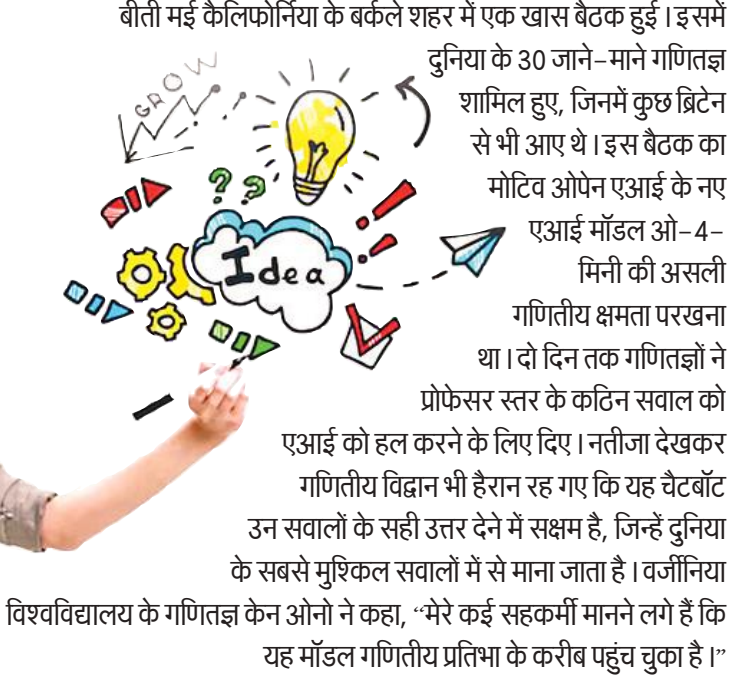 बीती मई कैलिफोर्निया के बर्कले शहर में एक खास बैठक हुई । इसमें
दुनिया के 30 जाने-माने गणितज्ञ
शामिल हुए, जिनमें कुछ ब्रिटेन
से भी आए थे । इस बैठक का
मोटिव ओपेन एआई के नए
एआई मॉडल ओ-4-
मिनी की असली
गणितीय क्षमता परखना
था । दो दिन तक गणितज्ञों ने
प्रोफेसर स्तर के कठिन सवाल को
एआई को हल करने के लिए दिए । नतीजा देखकर
गणितीय विद्वान भी हैरान रह गए कि यह चैटबॉट
उन सवालों के सही उत्तर देने में सक्षम है, जिन्हें दुनिया
के सबसे मुश्किल सवालों में से माना जाता है । वर्जीनिया
विश्वविद्यालय के गणितज्ञ केन ओनो ने कहा, “मेरे कई सहकर्मी मानने लगे हैं कि
यह मॉडल गणितीय प्रतिभा के करीब पहुंच चुका है ।”
GROW
??
Idea